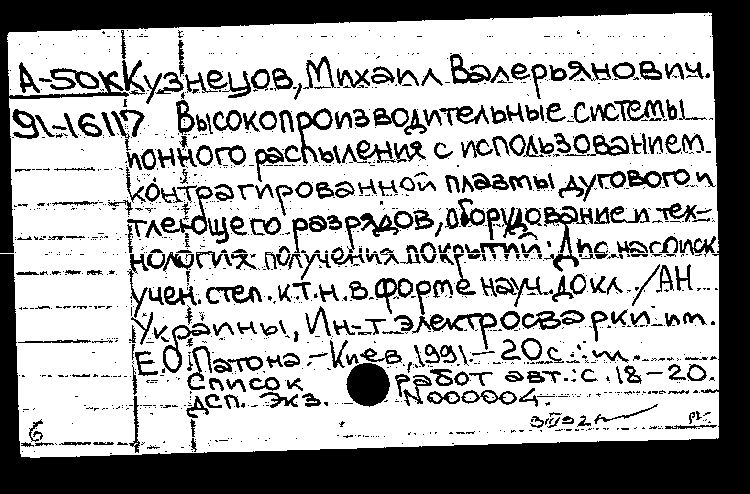 А-50к Кузнецов, Михаил Валерьянович.
91-16117 Высокопроизводительные системы
ионного распыления с использованием
контрагированной плазмы дугового и
тлеющего разрядов, оборудование и тех-
нология получения покрытий: Дис на соиск
учен. степ. к.т.н. в форме науч. докл. /АН
Украины, Ин-т электросварки им.
Е.О. Патона. - Киев, 1991. - 20 с.: ил.
Список работ авт.: с. 18-20.
дсп. Экз. N000004.
6